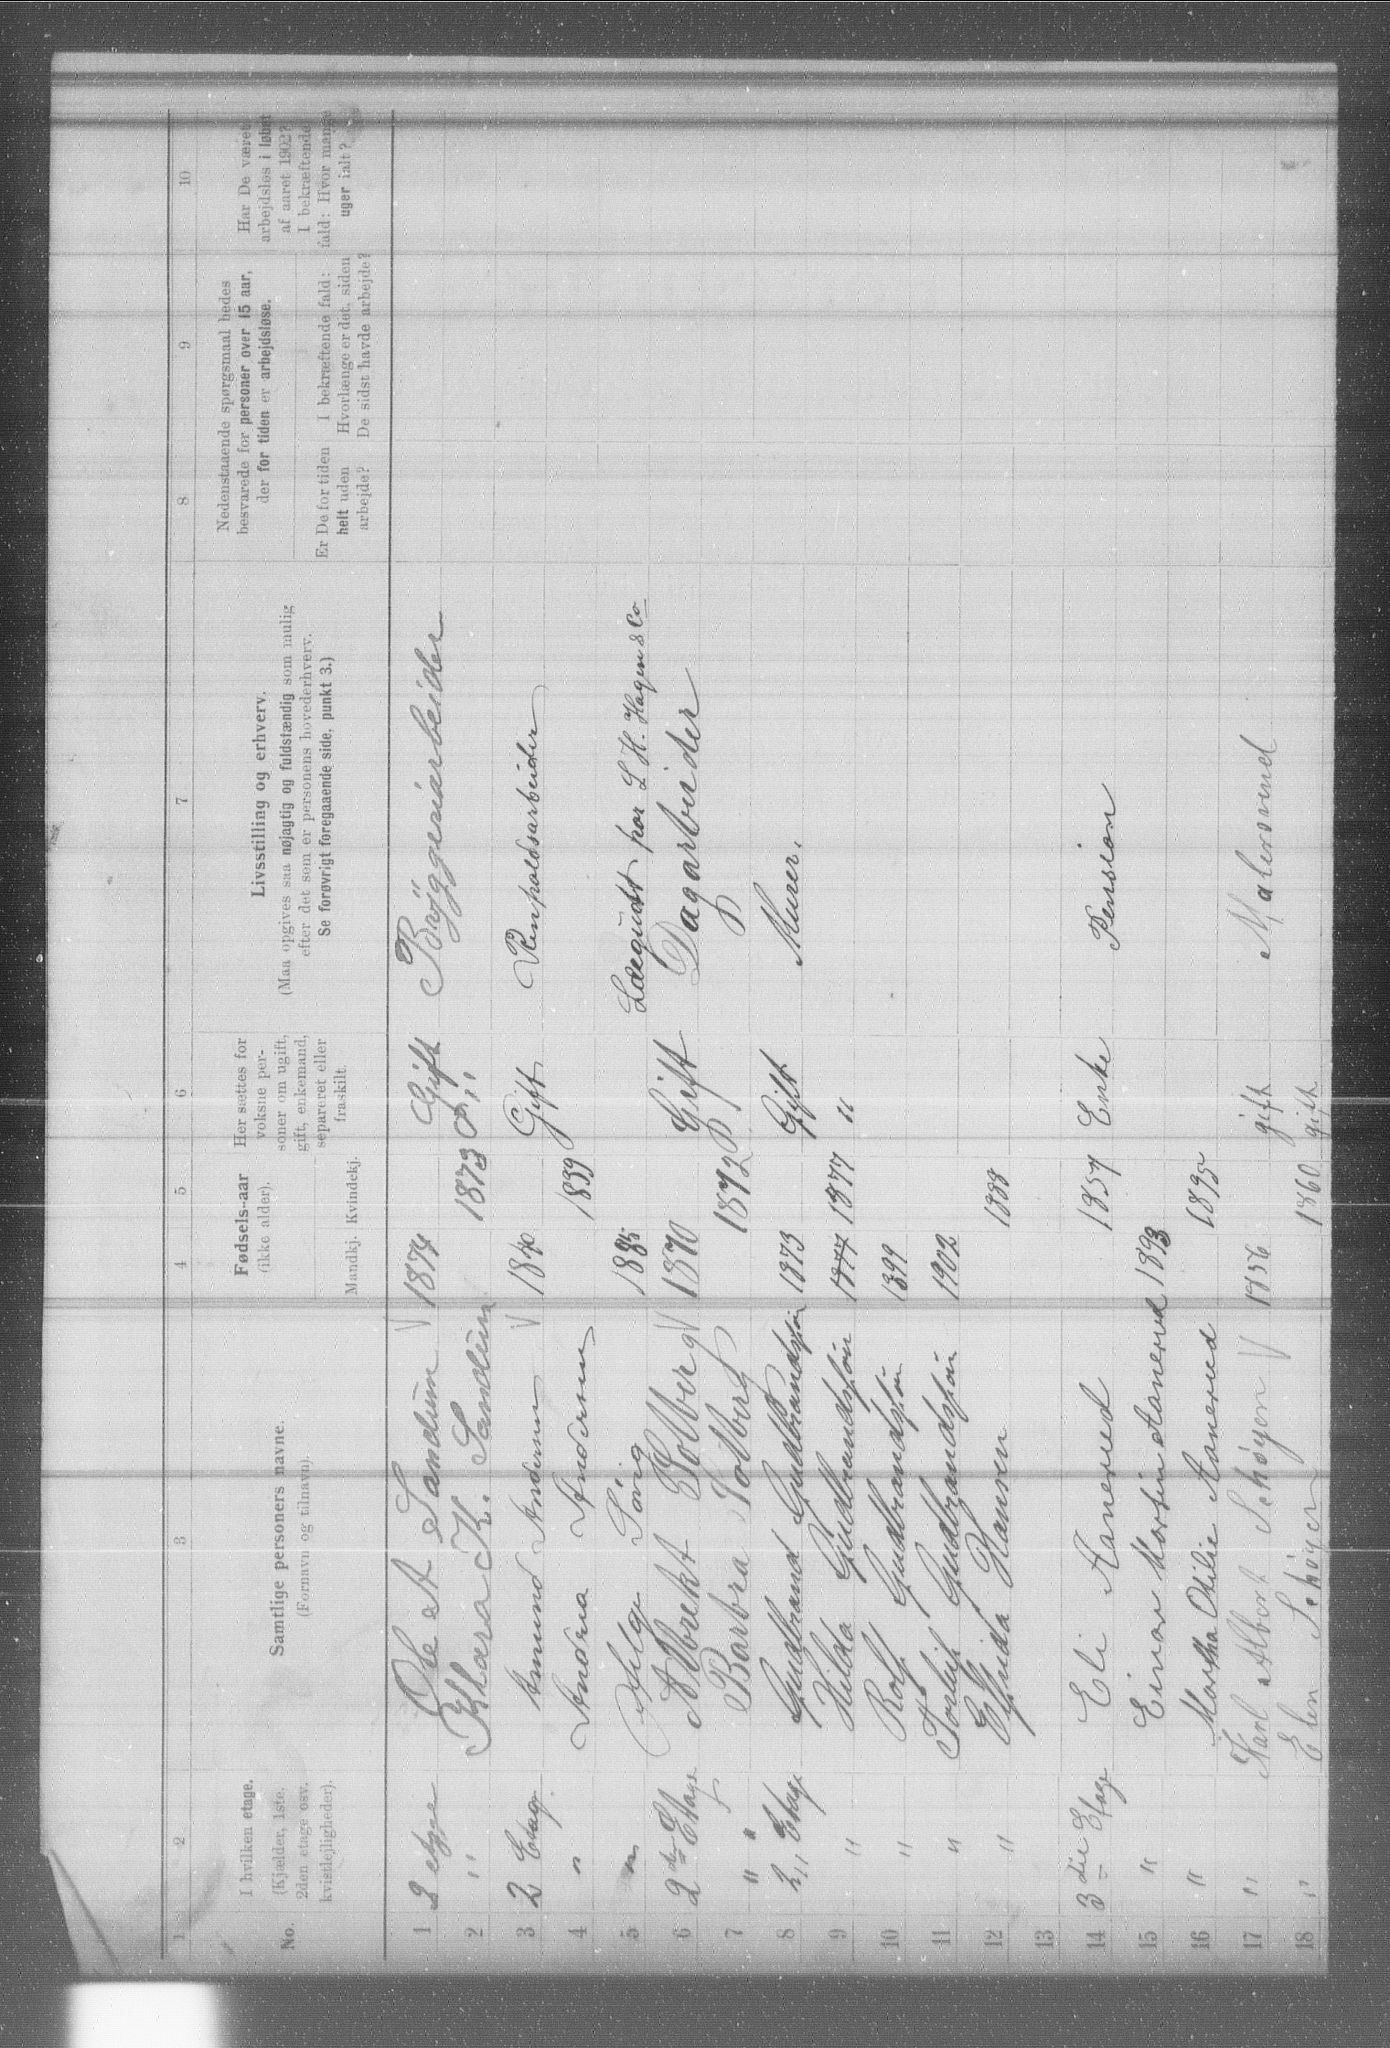 1 2 3 4 5 6 7 8 9 10
No.
I hvilken etage.
(Kjælder, 1ste,
2den etage osv.
kvistlejligheder).
Samtlige personers navne.
(Fornavn og tilnavn).
Fødsels-aar
(ikke alder).
Mandkj. Kvindekj.
Her sættes for
voksne per-
soner om ugift,
gift, enkemand,
separeret eller
fraskilt.
Livsstilling og erhverv.
(Maa opgives saa nøjagtig og fuldstændig som mulig
efter det som er personens hovederhverv.
Se forøvrigt foregaaende side, punkt 3.)
Nedenstaaende spørgsmaal bedes
besvarede for personer over 15 aar,
der for tiden er arbejdsløse.
Er De for tiden
helt uden
arbejde?
I bekræftende fald:
Hvorlænge er det, siden
De sidst havde arbejde?
Har De været
arbejdsløs i løbet
af aaret 1902?
I bekræftende
fald: Hvor mange
uger ialt?
1 2 etage Ole A Sandum V 1874 Gift Bryggeriarbeider
2 " Klara K. Sandum 1873 "
3 2 Etag. Amund Andersen V 1840 Gift Renholdsarbeider
4 " Andrea Andersen 1839
5 " Helge 1885 L. H. Hagen & Co
6 2den Etage Albrekt Solberg V 1870 Gift Dagarbeider
7 " " Barbra Solberg 1872
8 2 " Etage Gudbrand Gudbrandsøn 1873 Gift Murer.
9 " Hilda Gudbrandsøn 1877 1877 "
10 " Rolf Gudbrandsøn 1899
11 " Torleif Gudbrandsøn 1902
12 " Elfrida Hansen 1888
13
14 3die Etage Eli Aanerud 1857 Enke Pension
15 " Einar Martin Aanerud 1893
16 " Martha Otilie Aanerud 1895
17 " Karl Albert Schøyen V 1856 gift Malersvend
18 " Elen Schøyen 1860 gift